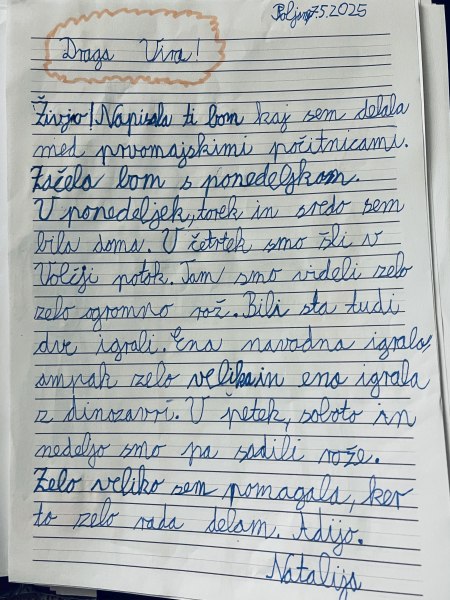 Poljane, 7.5.2025
Draga Vira!
Živjo! Napisala ti bom kaj sem delala
med prvomajskimi počitnicami.
Začela bom s ponedeljkom.
V ponedeljek, torek in sredo sem
bila doma. V četrtek smo šli v
Volčji potok. Tam smo videli zelo
zelo ogromno rož. Bili sta tudi
dve igrali. Ena navadna igrala,
ampak zelo velika in ena igrala
z dinozavri. V petek, soboto in
nedeljo smo pa sadili rože.
Zelo veliko sem pomagala, ker
to zelo rada delam. Adijo.
Natalija